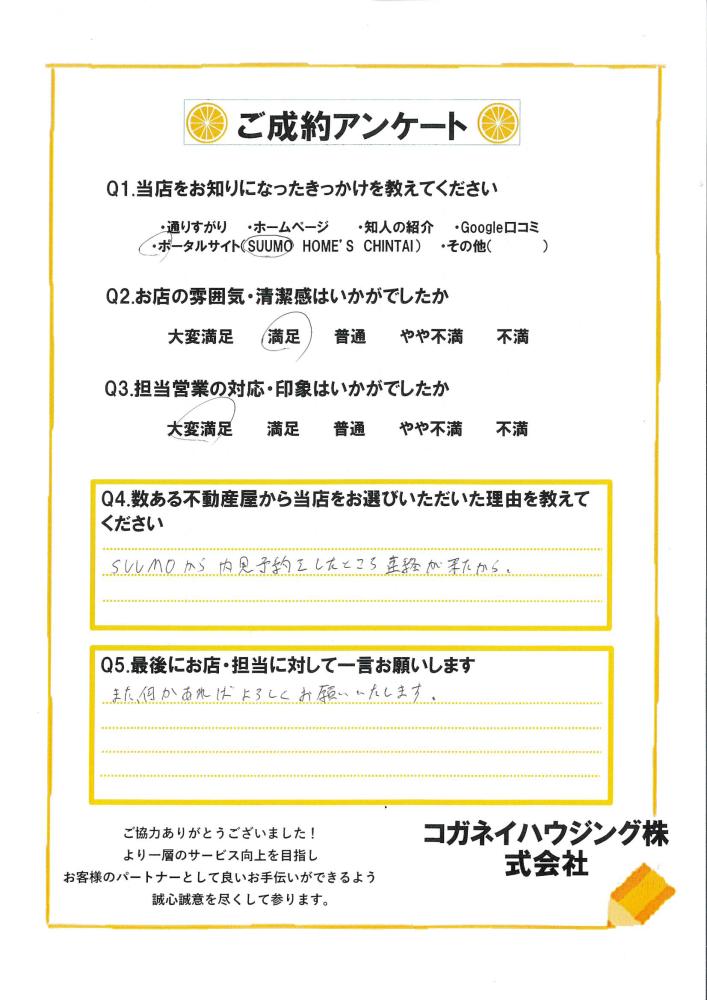 ご成約アンケート
Q1.当店をお知りになったきっかけを教えてください
・通りすがり ・ホームページ ・知人の紹介 ・Google口コミ
・ポータルサイト(SUUMO HOME'S CHINTAI) ・その他( )
Q2.お店の雰囲気・清潔感はいかがでしたか
大変満足 満足 普通 やや不満 不満
Q3.担当営業の対応・印象はいかがでしたか
大変満足 満足 普通 やや不満 不満
Q4.数ある不動産屋から当店をお選びいただいた理由を教えて
ください
SUUMOから内見予約をしたところ連絡が来たから。
Q5.最後にお店・担当に対して一言お願いします
また、何かあればよろしくお願いいたします。
ご協力ありがとうございました！
より一層のサービス向上を目指し
お客様のパートナーとして良いお手伝いができるよう
誠心誠意を尽くして参ります。
コガネイハウジング株
式会社